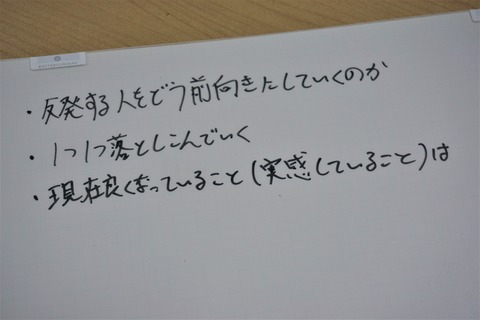 ・反発する人をどう前向きにしていくのか
・1つ1つ落としこんでいく
・現在良くなっていること(実感していること)は